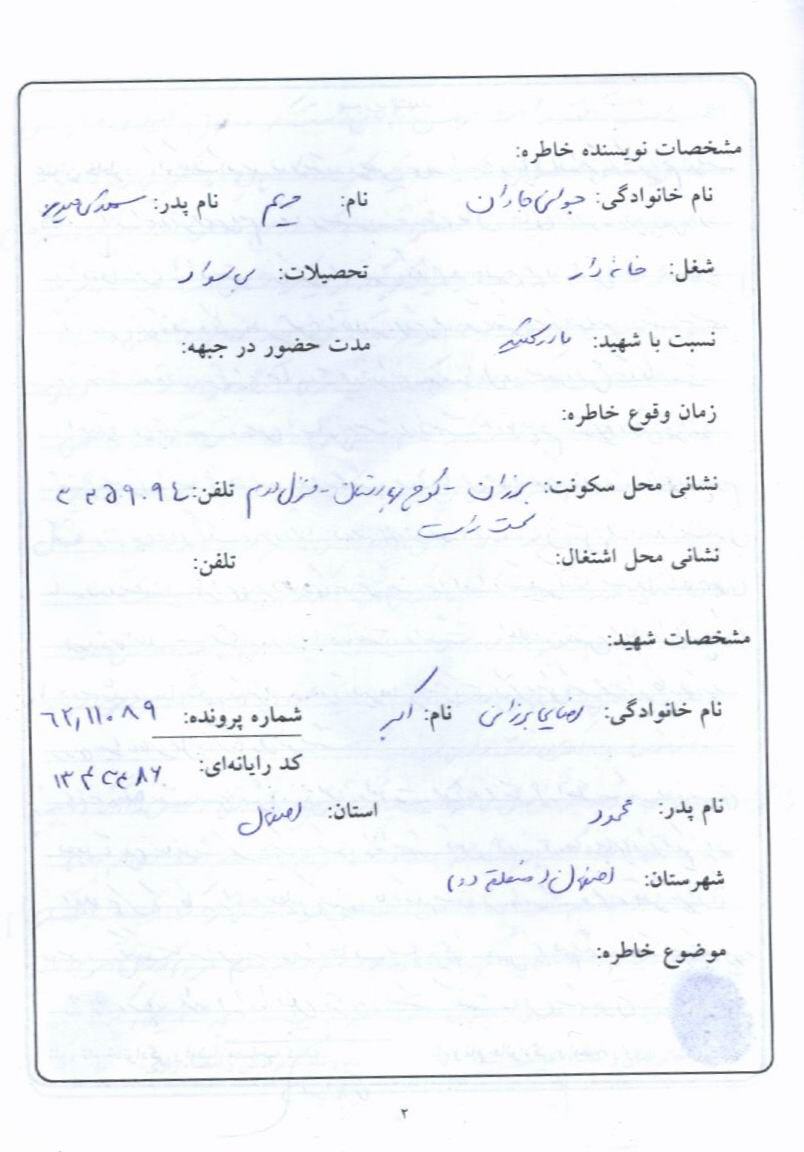 مشخصات نویسنده خاطره:
نام خانوادگی: جولانی خاران نام: مریم نام پدر:
شغل: خانه دار تحصیلات: بی سواد
نسبت با شهید: مادر شهید مدت حضور در جبهه:
زمان وقوع خاطره:
نشانی محل سکونت: برزان - کوچه - منزل دوم تلفن:
سمت راست
نشانی محل اشتغال: تلفن:
مشخصات شهید:
نام خانوادگی: رضایی برزانی نام: اکبر شماره پرونده: ۶۲,۱۱۰۸۹
کد رایانه‌ای:
نام پدر: محمود استان: اصفهان
شهرستان: اصفهان (منطقه دو)
موضوع خاطره:
۲